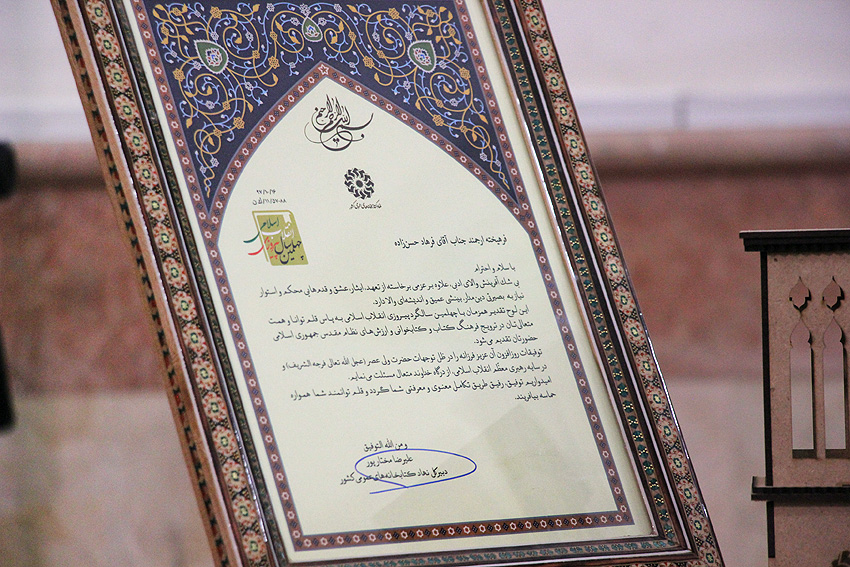 بسم الله الرحمن الرحیم
نهاد کتابخانه‌های عمومی کشور
۹۷/۱۰/۲۴
چهلمین سال
انقلاب اسلامی
فرهیخته ارجمند جناب آقای فرهاد حسن‌زاده
با سلام و احترام
بی شک آفرینش والای ادبی، علاوه بر عزمی برخاسته از تعهد، ایثار، عشق و قدم‌هایی محکم و استوار
نیاز به بصیرتی دین مدار، بینشی عمیق و اندیشه‌ای والا دارد.
این لوح تقدیم همزمان با چهلمین سالگرد پیروزی انقلاب اسلامی به پاس قلم توانا و همت
متعالی‌تان در ترویج فرهنگ کتاب و کتابخوانی و ارزش‌های نظام مقدس جمهوری اسلامی
حضورتان تقدیم می‌شود.
توفیقات روزافزون آن عزیز فرزانه را در ظل توجهات حضرت ولی عصر (عجل الله تعالی فرجه الشریف) و
در سایه رهبری معظم انقلاب اسلامی، از درگاه خداوند متعال مسئلت می‌نمایم.
امیدواریم توفیق، رفیق طریق تکامل معنوی و معرفتی شما گردد و قلم توانمند شما همواره
حماسه بیافریند.
و من الله التوفیق
علیرضا مختارپور
دبیرکل نهاد کتابخانه‌های عمومی کشور